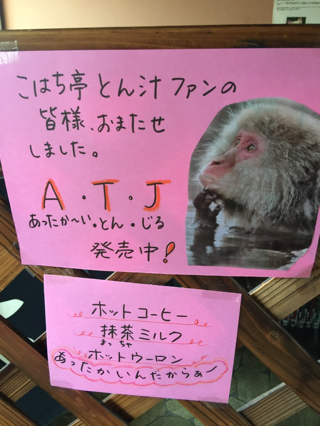 こはち亭 とん汁 ファンの
皆様、おまたせ
しました。
A・T・J
あったか〜い・とん・じる
発売中!
ホットコーヒー
抹茶ミルク
まっちゃ
ホットウーロン
あったかいんだからぁ〜